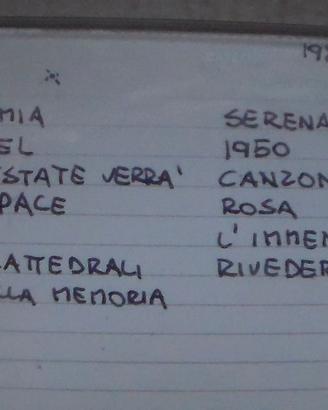 198
MIA SERENA
EL 1950
STATE VERRA' CANZON
PACE ROSA
L' IMMEN
ATTEDRALI RIVEDER
LLA MEMORIA